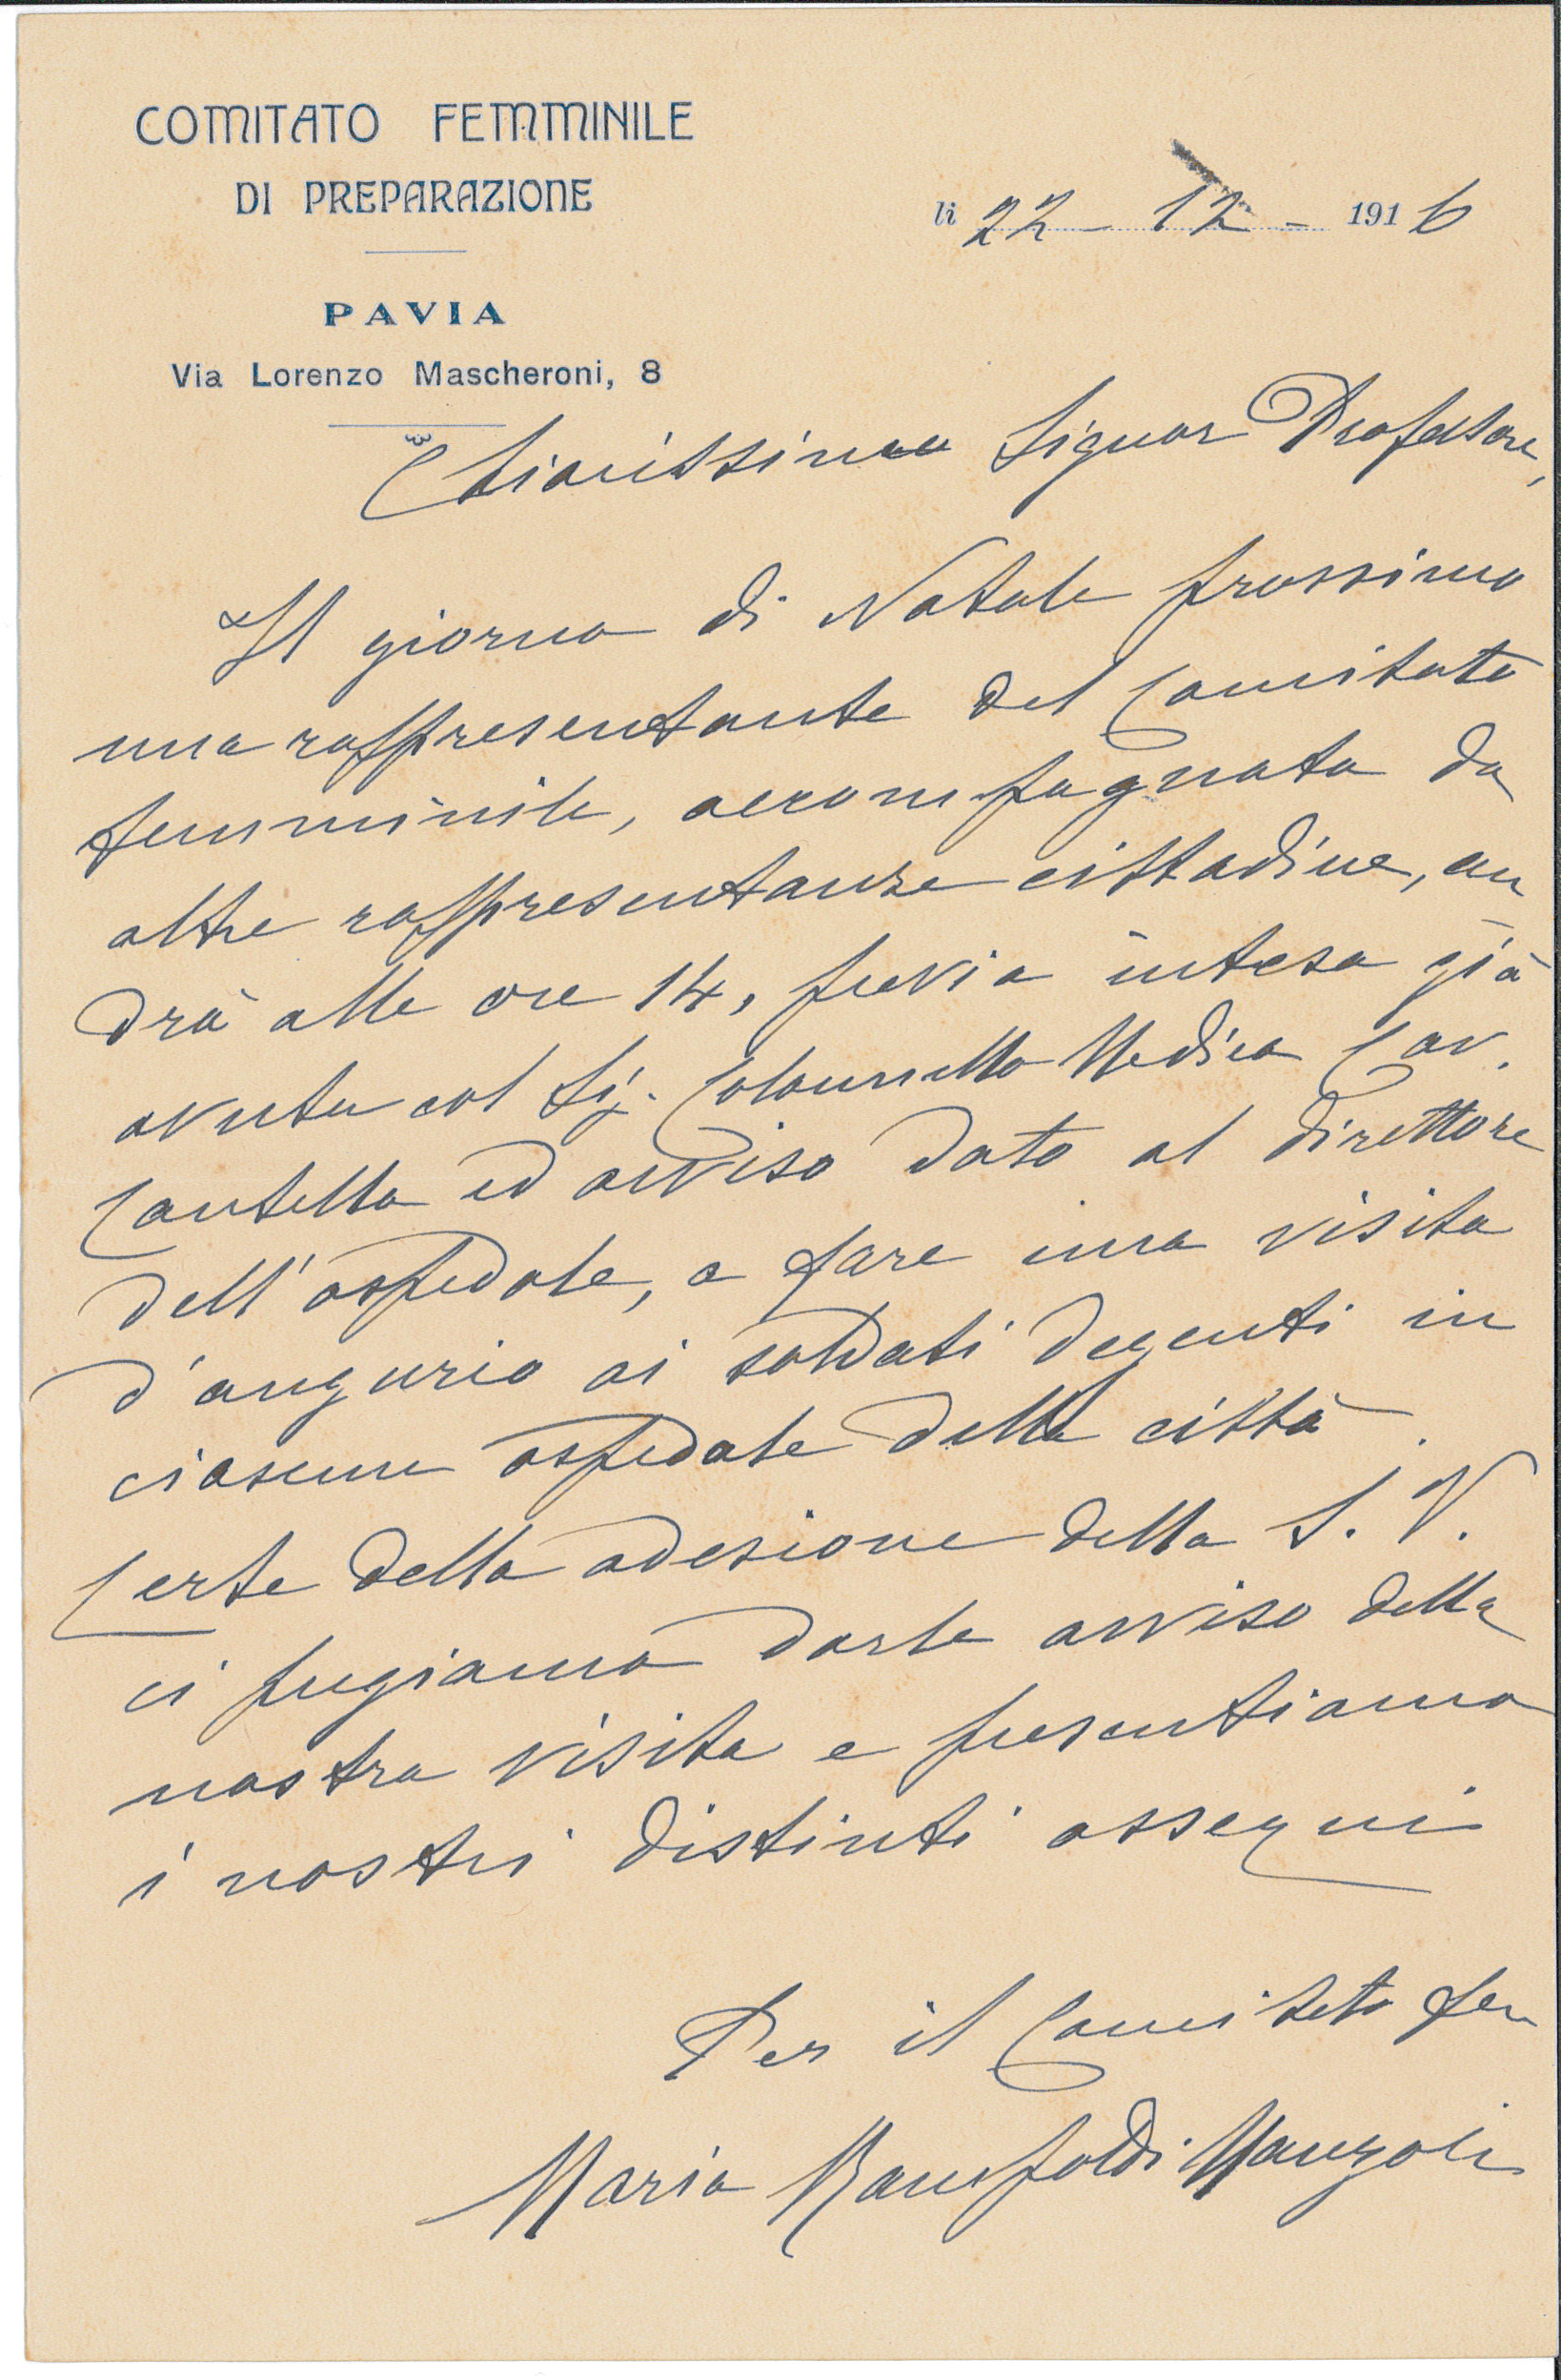 COMITATO FEMMINILE
DI PREPARAZIONE
PAVIA
Via Lorenzo Mascheroni, 8
li 22 - 12 - 1916
Chiarissimo Signor Professore,
Il giorno di Natale prossimo
una rappresentante del Comitato
femminile, accompagnata da
altre rappresentanze cittadine, an
drà alle ore 14, previa intesa già
avuta col Sig. Colonnello Medico Cav.
Cantella ed avviso dato al Direttore
dell'ospedale, a fare una visita
d'augurio ai soldati degenti in
ciascun ospedale della città.
Certe della adesione della S. V.
ci pregiamo darle avviso della
nostra visita e presentiamo
i nostri distinti ossequi
Per il Comitato fem
Maria Rampoldi Manzoli